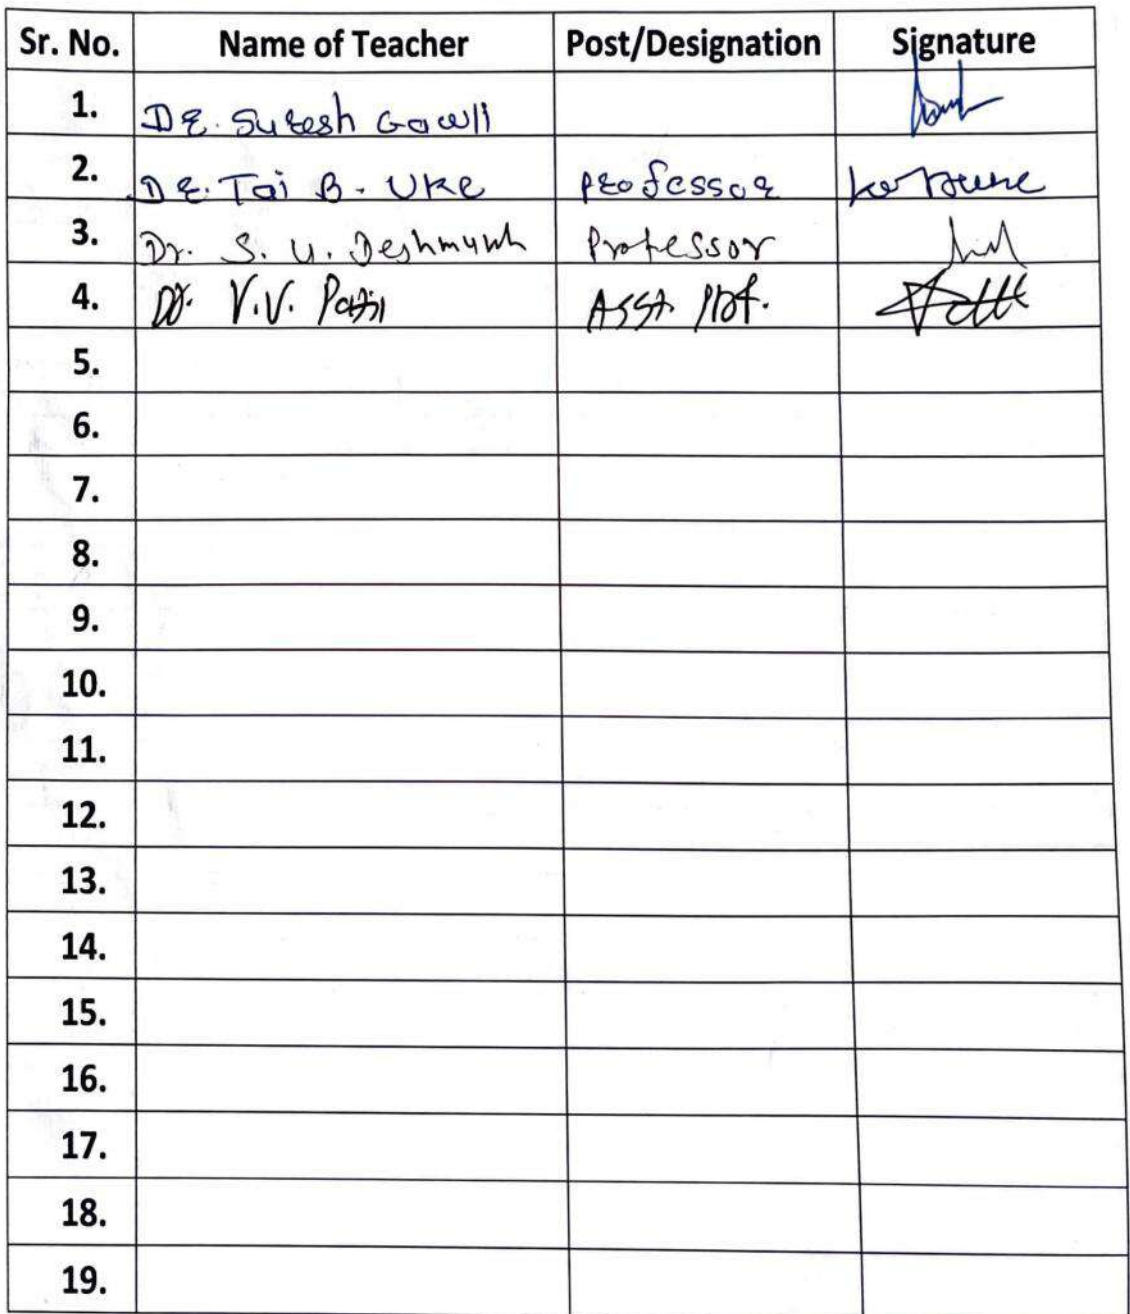 Sr. No. Name of Teacher Post/Designation Signature
1. Dr. Suresh Gawli
2. Dr. Tai B. Uke Professor
3. Dr. S. U. Deshmukh Professor
4. Dr. V.V. Patil Asst. Prof.
5.
6.
7.
8.
9.
10.
11.
12.
13.
14.
15.
16.
17.
18.
19.